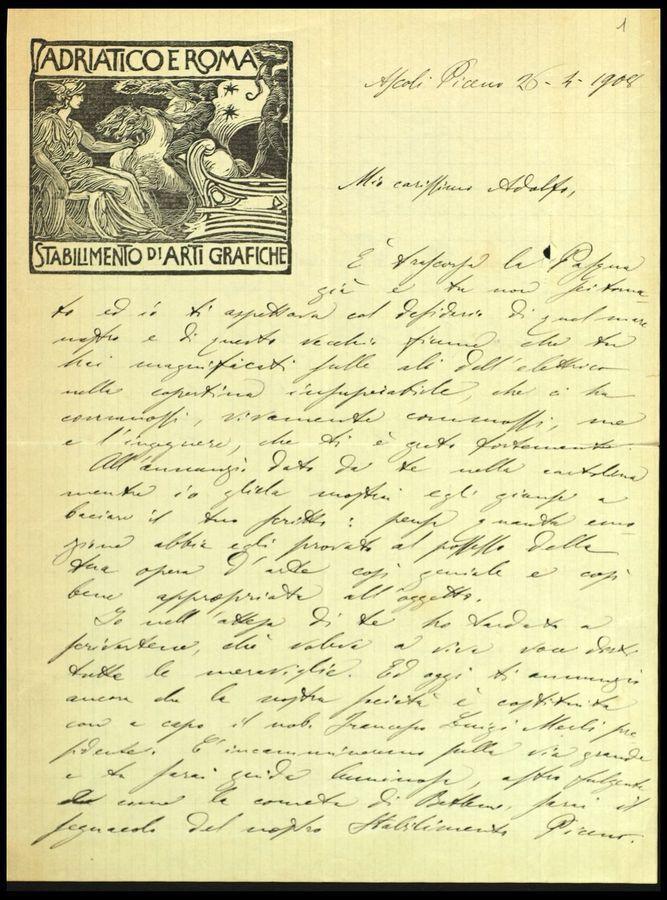 1
ADRIATICO E ROMA
STABILIMENTO DI ARTI GRAFICHE
Ascoli Piceno 26-4-1908
Mio carissimo Adolfo,
È trascorsa la Pasqua
già e tu non sei torna
to ed io ti aspettava col desiderio di quel mare
nostro e di questo vecchio fiume che tu
hai magnificati sulle ali dell'elettrico
nella copertina insuperabile, che ci ha
commossi, vivamente commossi, me
e l'ingegnere, che ti è grato fortemente.
All'annunzio dato da te nella cartolina
mentre io gliela mostrai egli giunse a
baciare il tuo scritto: pensa quanta emo
zione abbia egli provato al possesso della
tua opera d'arte così geniale e così
bene appropriata all'oggetto.
Io nell'attesa di te ho tardato a
scrivertene, chè voleva a viva voce dirti
tutte le meraviglie. Ed oggi ti annunzio
ancora che la nostra società è costituita
con a capo il nob. Francesco Luigi Merli pre
sidente. C'incammineremo sulla via grande
e tu sarai guida luminosa, astro fulgente
come la cometa di Betlem, sarai il
segnacolo del nostro Stabilimento Piceno.